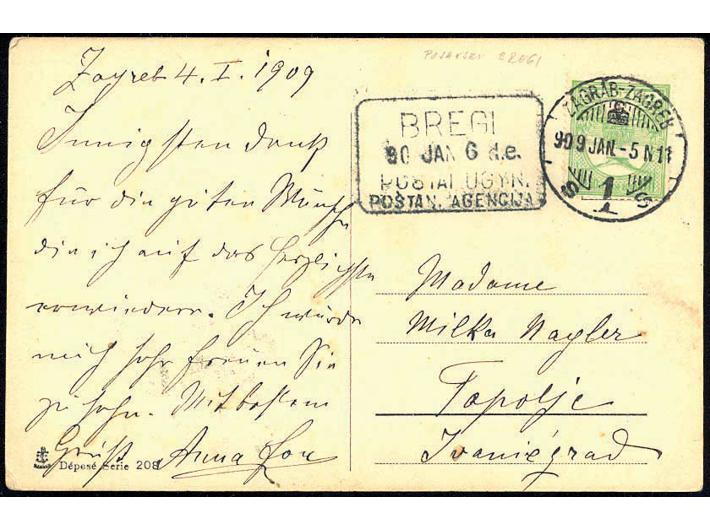 POSAVSKI BREGI
Zagreb 4. I. 1909
Innigsten Dank
für die guten Wünsche
die ich auf das herzlichste
erwiedere. Ich würde
mich sehr freuen Sie
zu sehn. Mit bestem
Gruß Anna
Dépesé Serie 208
BREGI
90 JAN 6 d.e.
POSTAI ÜGYN.
POŠTAN. AGENCIJA
ZÁGRÁB-ZAGREB
909 JAN -5 N 11
S 1 S
Madame
Milka Nagler
Topolje
Ivanićgrad